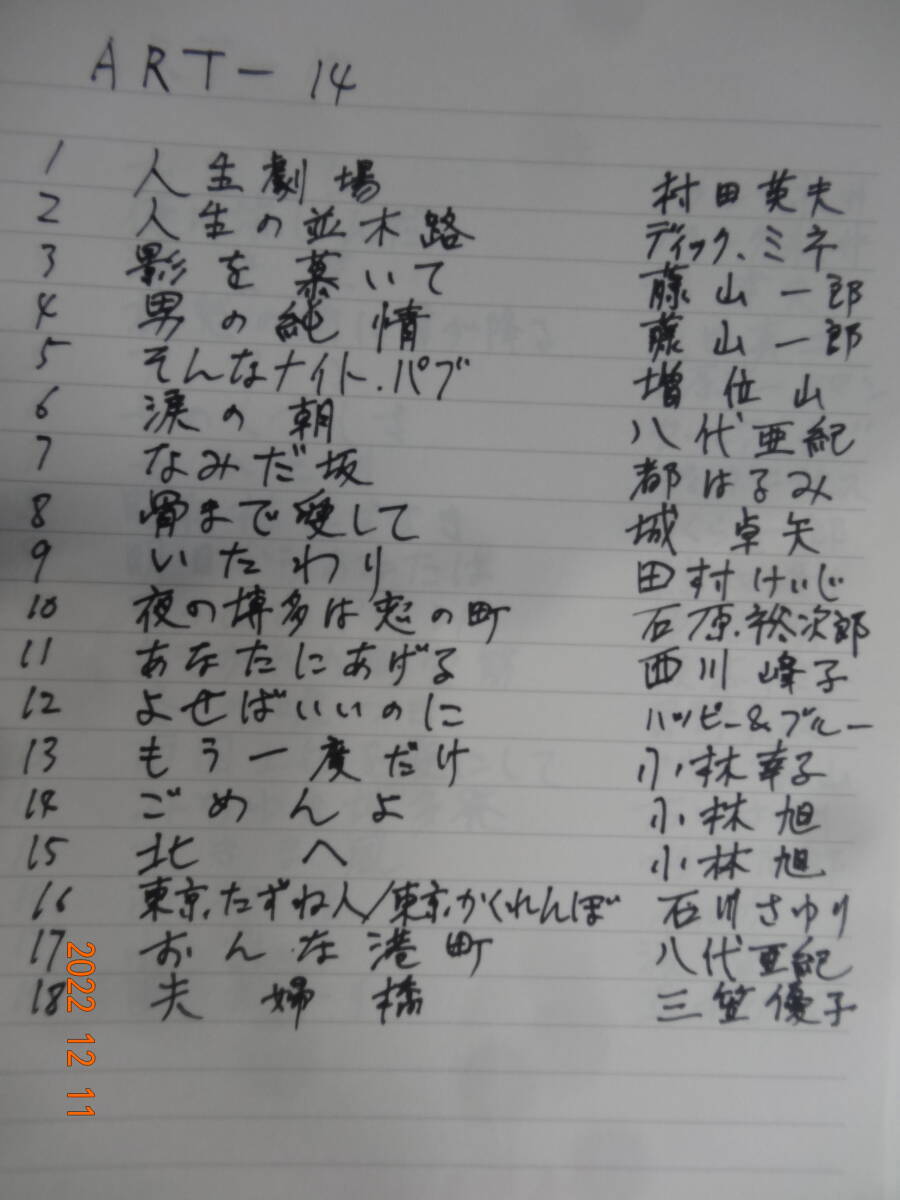 ART－14
1 人生劇場 村田英夫
2 人生の並木路 ディック.ミネ
3 影を慕いて 藤山一郎
4 男の純情 藤山一郎
5 そんなナイト.パブ 増位山
6 涙の朝 八代亜紀
7 なみだ坂 都はるみ
8 骨まで愛して 城卓矢
9 いたわり 田村けいじ
10 夜の博多は恋の町 石原裕次郎
11 あなたにあげる 西川峰子
12 よせばいいのに ハッピー&ブルー
13 もう一度だけ 小林幸子
14 ごめんよ 小林旭
15 北へ 小林旭
16 東京.たずね人/東京.かくれんぼ 石川さゆり
17 おんな港町 八代亜紀
18 夫婦橋 三笠優子
2022 12 11